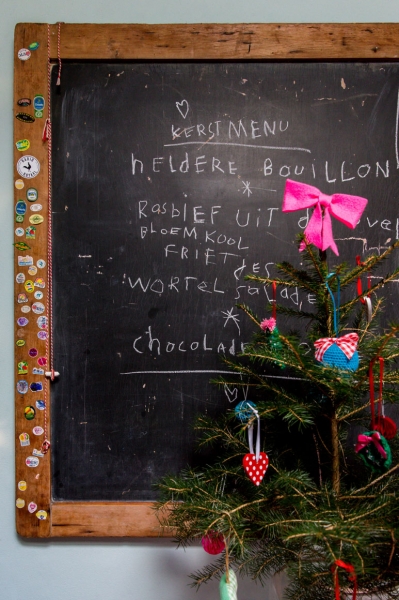 KERSTMENU
HELDERE BOUILLON
RosbIEF UIT d ve
BLOEMKOOL
FRIETJES
WORTEL Salade
chocolade